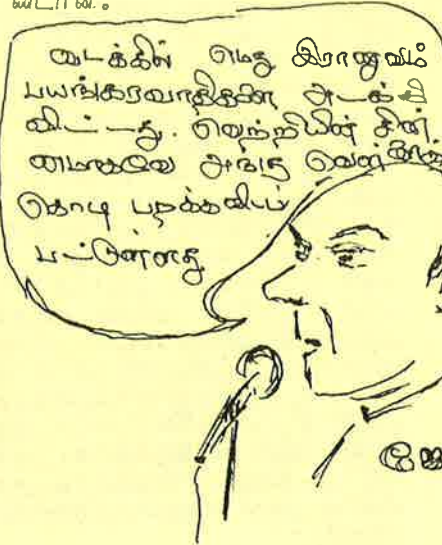 வடக்கில் எமது இராணுவம்
பயங்கரவாதிகளை அடக்கி
விட்டது. வெற்றியின் சின்
னமாகவே அங்கு வெள்ளைக்
கொடி பறக்கவிடப்
பட்டுள்ளது